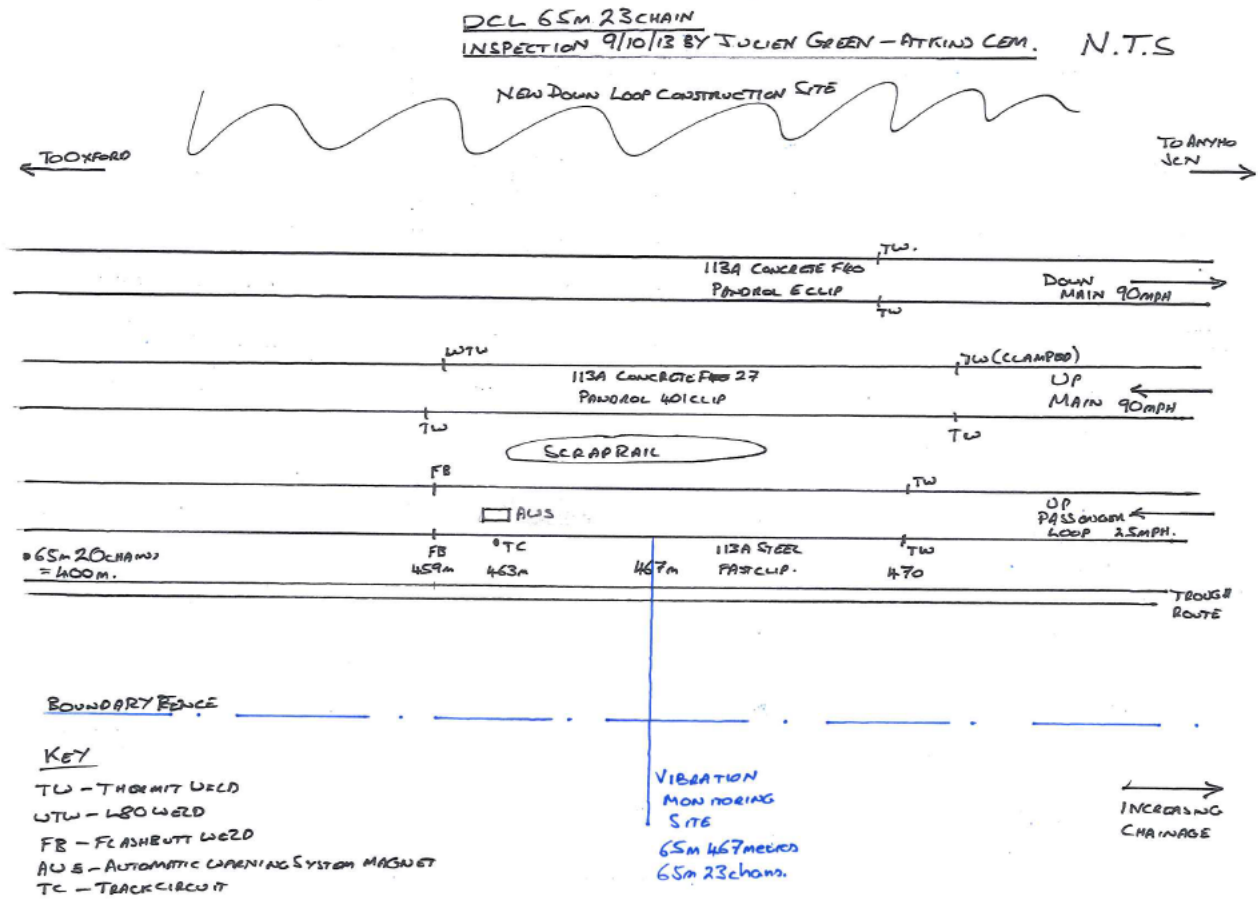 DCL 65m 23CHAIN
INSPECTION 9/10/13 BY JULIEN GREEN - ATKINS CEM.
N.T.S
NEW DOWN LOOP CONSTRUCTION SITE
TO OXFORD
TO AYNHO
JCN
TW.
113A CONCRETE F40
PANDROL E CLIP
DOWN
MAIN 90MPH
TW
WTW
TW (CLAMPED)
113A CONCRETE 27
PANDROL 401 CLIP
UP
MAIN 90MPH
TW
TW
SCRAP RAIL
FB
TW
AWS
UP
PASSENGER
LOOP 25MPH.
65m 20CHAINS
= 400m.
FB
TC
113A STEEL
FASTCLIP.
TW
459m
463m
467m
470
TROUGH
ROUTE
BOUNDARY FENCE
KEY
TW - THERMIT WELD
WTW - L80 WELD
FB - FLASHBUTT WELD
AWS - AUTOMATIC WARNING SYSTEM MAGNET
TC - TRACK CIRCUIT
VIBRATION
MONITORING
SITE
65m 467metres
65m 23chains.
INCREASING
CHAINAGE